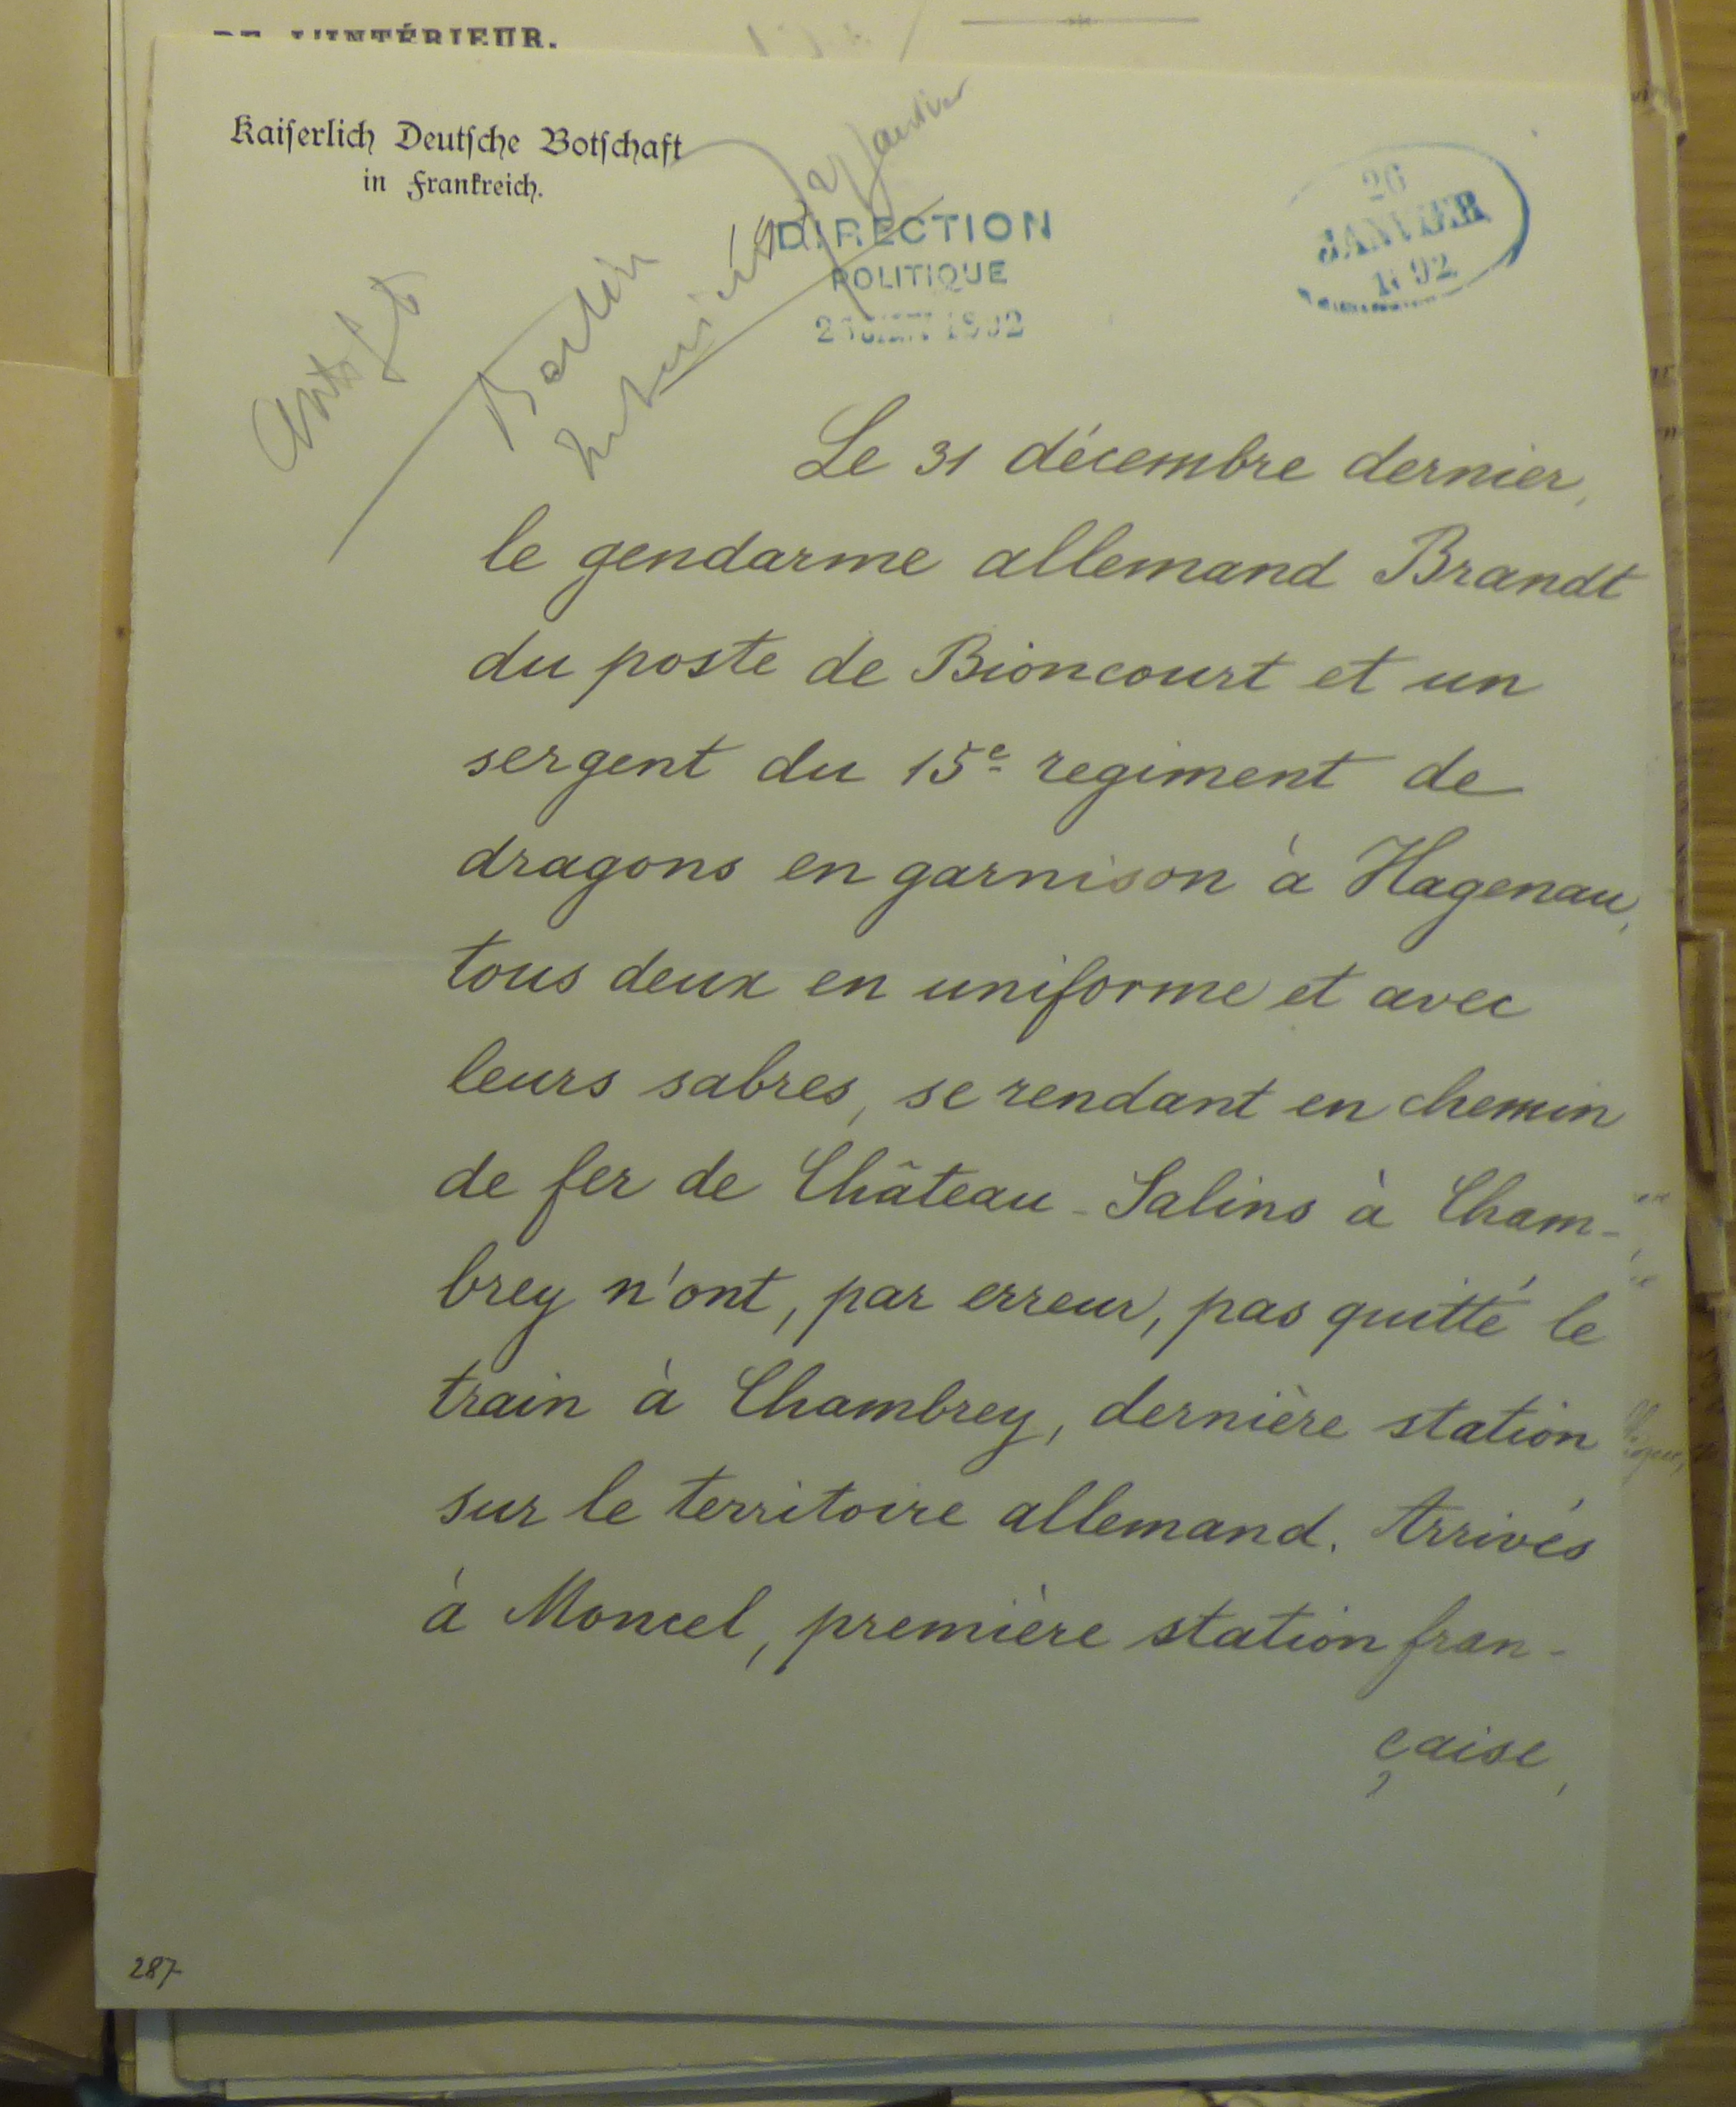 DE L'INTÉRIEUR.
Kaiserlich Deutsche Botschaft
in Frankreich.
26
JANVIER
1892
DIRECTION
POLITIQUE
1892
Berlin
Intérieur
janvier
Le 31 décembre dernier,
le gendarme allemand Brandt
du poste de Bioncourt et un
sergent du 15e regiment de
dragons en garnison à Hagenau,
tous deux en uniforme et avec
leurs sabres, se rendant en chemin
de fer de Château-Salins à Cham-
brey n'ont, par erreur, pas quitté le
train à Chambrey, dernière station
sur le territoire allemand. Arrivés
à Moncel, première station fran-
çaise,
287